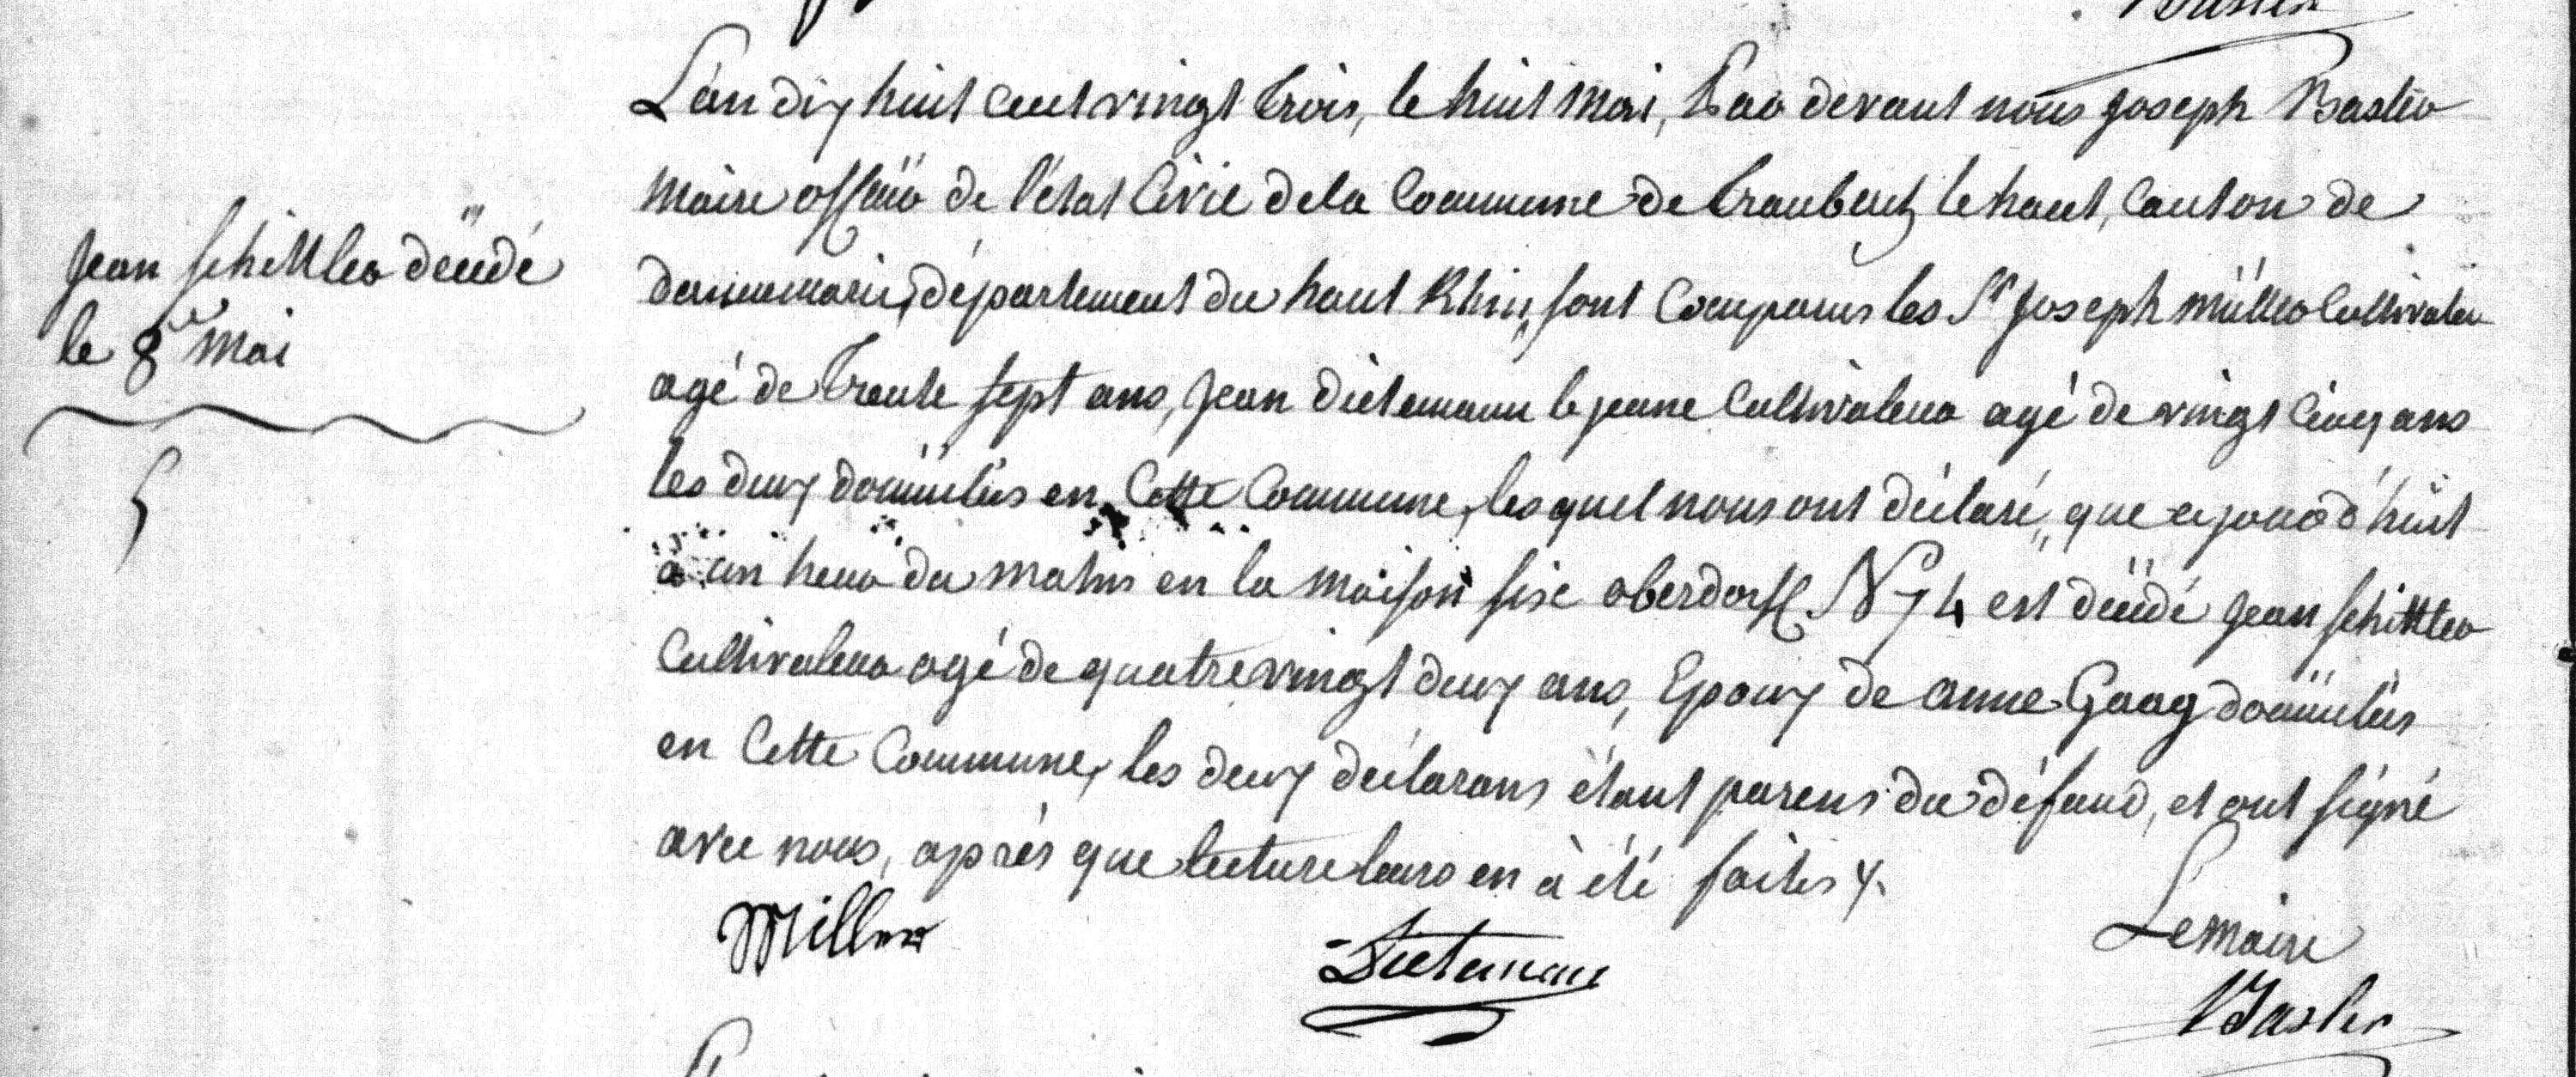 L'an dix huit cent vingt trois, le huit mai, Par devant nous Joseph Basler
Maire officier de l'état Civil de la Commune de Traubach le haut, Canton de
dannemarie, département du haut Rhin, sont Comparus les Sr Joseph Müller Cultivateur
agé de trente sept ans, Jean Dietemann le jeune Cultivateur agé de vingt Cinq ans
les deux domiciliés en Cette Commune, lesquel nous ont déclaré, que ce jourd'huit
à un heur du matin en la maison sise oberdorff N 74 est décédé Jean Schittler
Cultivateur agé de quatre vingt deux ans, Epoux de Anne Gaag domiciliés
en Cette Commune, les deux déclarans étant parens du défund, et ont signé
avec nous, après que lecture leurs en à été faites
Jean Schittler décédé
le 8 Mai
5
Miller
Dietemann
Le maire
Basler